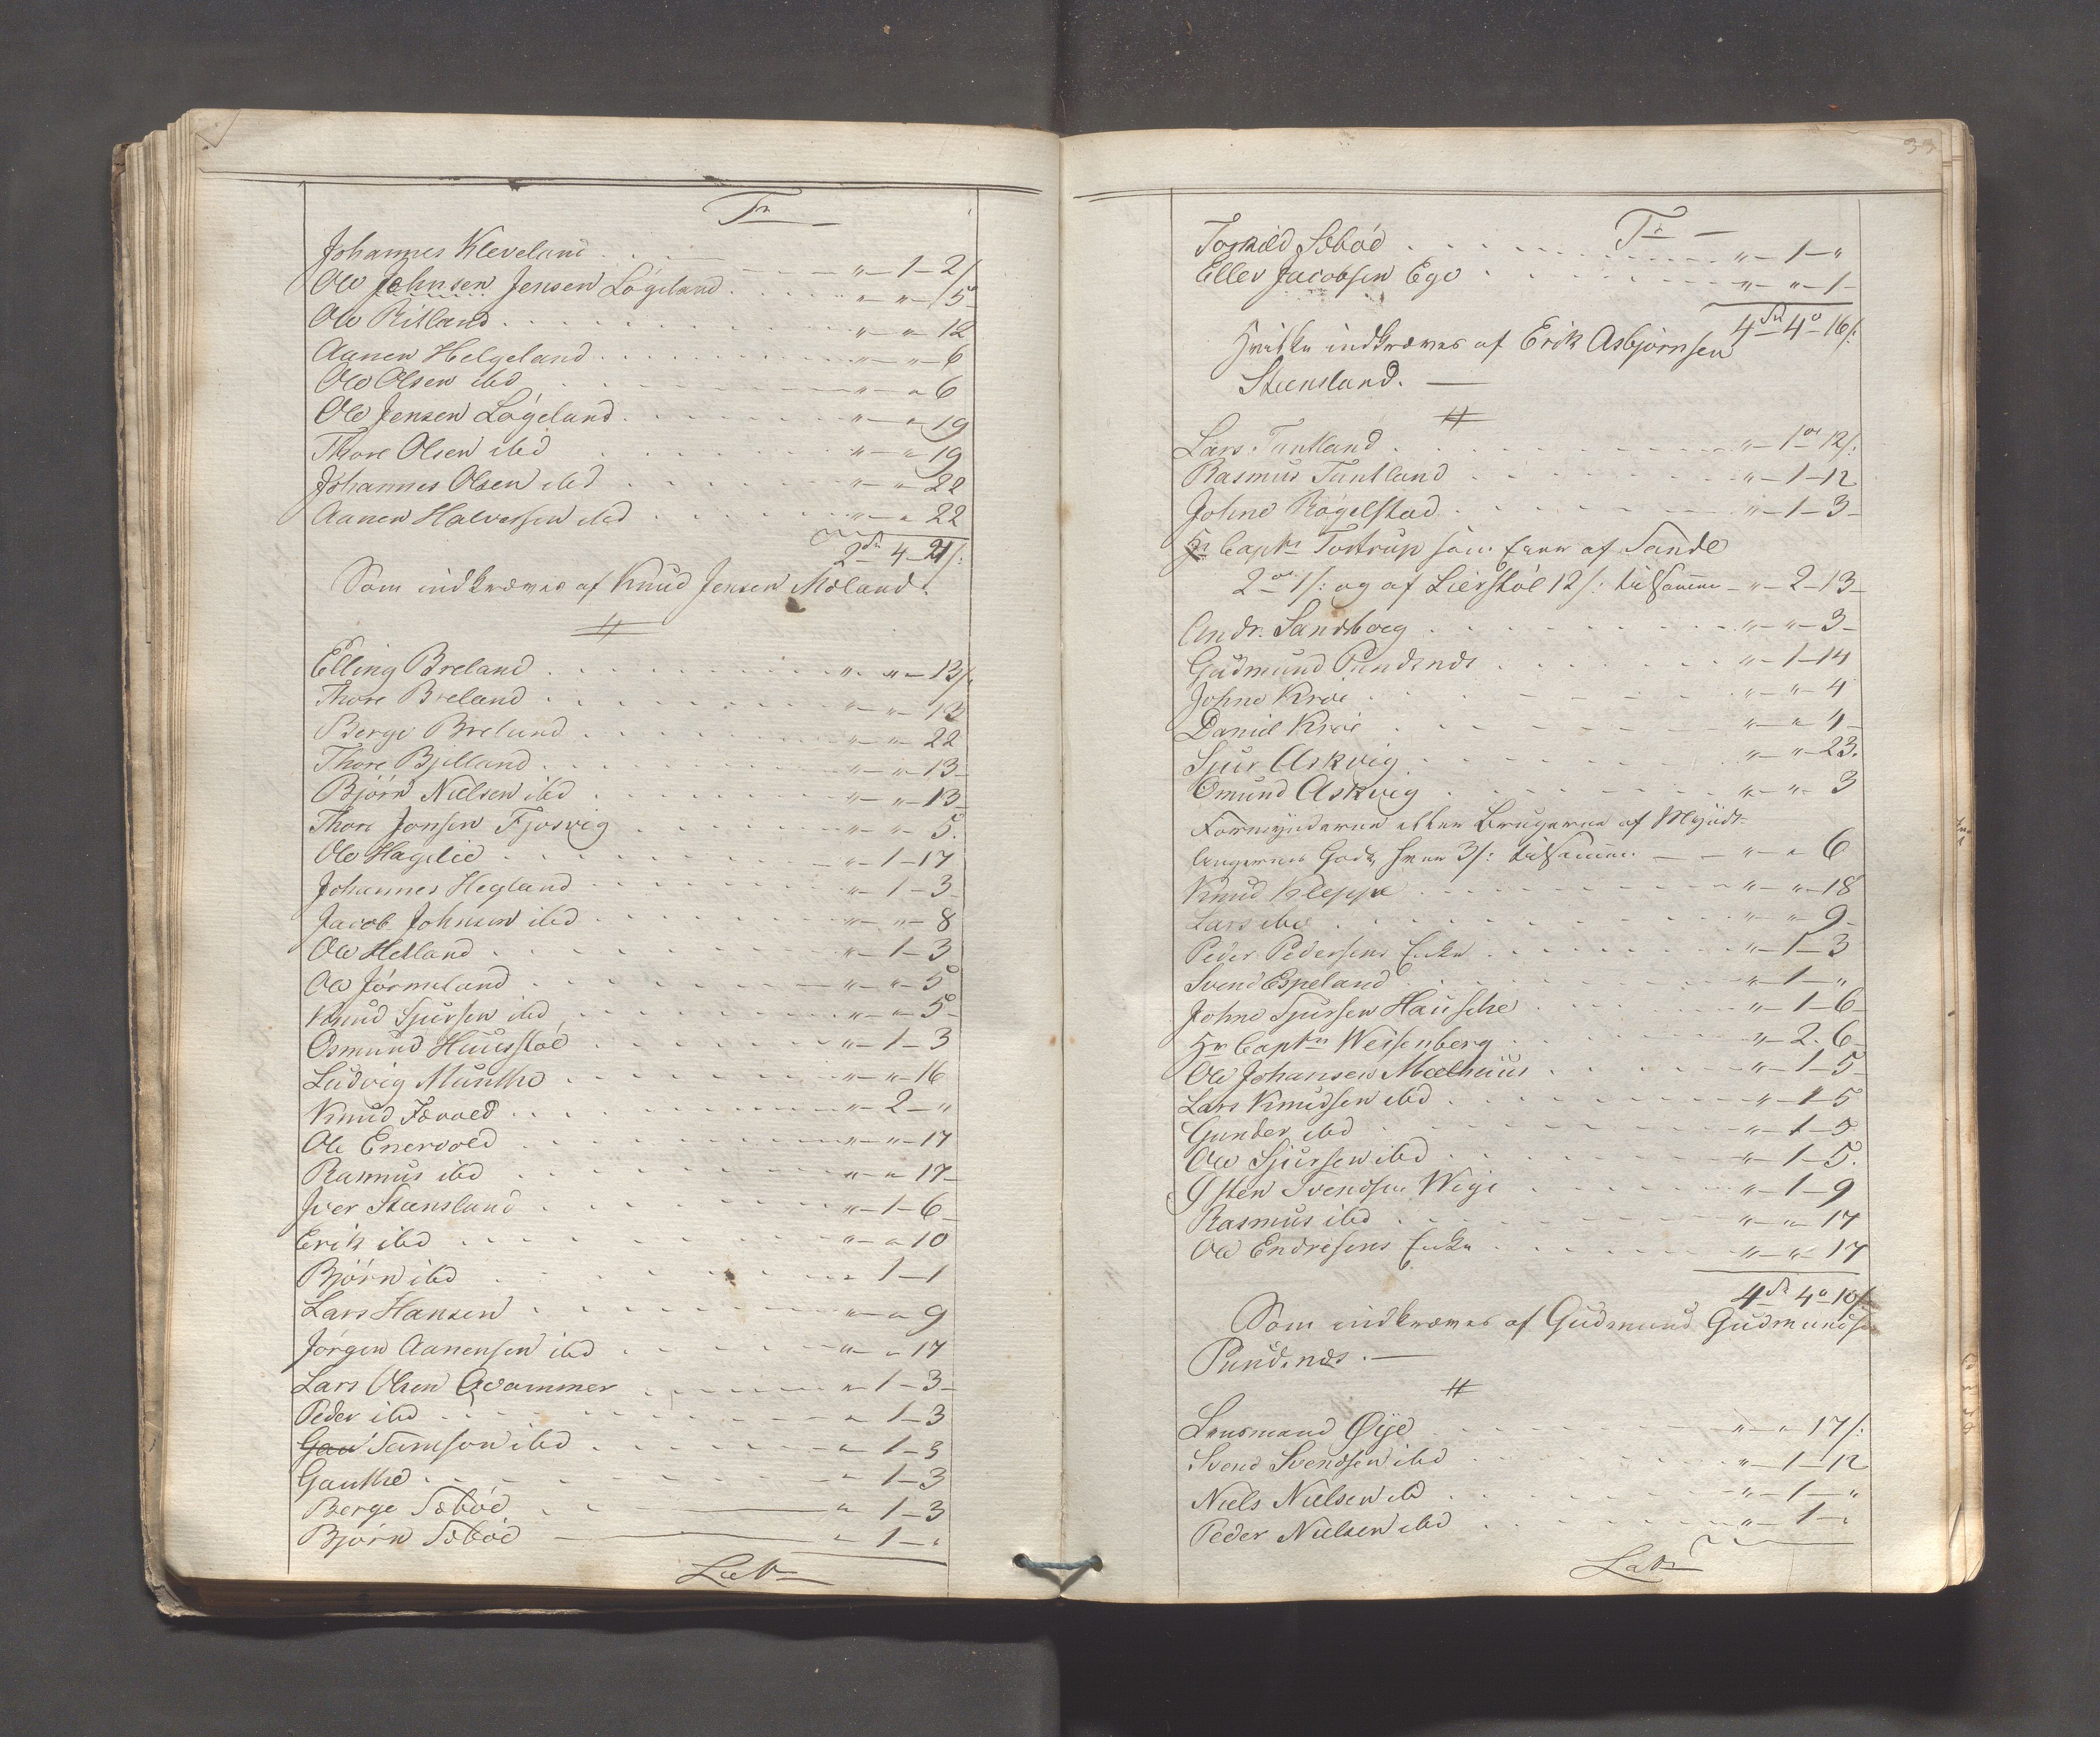 Tr
Johannes Kleveland . . . „ – 1 – 2/:
Ole Johnsen Jensen Løgeland . . . „ – „ – 5
Ole Ritland . . . „ – „ 12
Aanen Helgeland . . . „ – „ – 6
Ole Olsen ibd . . . „ – „ 6
Ole Jensen Løgeland . . . „ – „ 19
Thore Olsen ibd . . . „ – „ 19
Johannes Olsen ibd . . . „ – „ 22
Aanen Halvorsen ibd . . . „ – „ 22
2 – 4 – 21/:
Som indkræves af Knud Jensen Moland.
Elling Breland . . . „ – „ – 13/:
Thore Breland . . . „ – „ – 13
Berge Breland . . . „ – „ – 22
Thore Bjelland . . . „ – „ – 13
Bjørn Nielsen ibd . . . „ – „ – 13
Thore Jonsen Fjosvig . . . „ – „ – 5.
Ole Hagelie . . . „ – 1 – 17
Johannes Hegland . . . „ – 1 – 3
Jacob Johnsen ibd . . . „ – „ – 8
Ole Hetland . . . „ – 1 – 3
Ole Jørmeland . . . „ – „ – 5
Knud Sjursen ibd . . . „ – „ – 5
Osmund Huusstøl . . . „ – 1 – 3
Ludvig Munthe . . . „ – „ – 16
Knud Færvold . . . „ – 2 – „
Ole Enervold . . . „ – „ – 17
Rasmus ibd . . . „ – „ – 17
Iver Steensland . . . „ – 1 – 6
Erik ibd . . . „ – „ 10
Bjørn ibd . . . „ 1 – 1
Lars Hansen . . . „ – „ 9
Jørgen Aanensen ibd . . . „ – „ 17
Lars Olsen Qvammer . . . „ – 1 – 3
Peder ibd . . . „ 1 – 3
Gau Samson ibd . . . „ 1 – 3
Gauthe . . . „ 1 – 3
Berge Sæbøe . . . „ 1 – 3
Bjørn Sæbøe „ 1 – „
Lat

33
Tr
Torkild Sæbøe . . . „ – 1 – „
Ellev Jacobsen Ege . . . „ – „ – 1
4 – 4 – 16/:
Hvilke indkræves af Erik Asbjørnsen
Steensland.
Lars Tuntland . . . „ – 1 12/:
Rasmus Tuntland . . . „ – 1 – 12
Johne Røgelstad . . . „ – 1 – 3
Hr Captn Tostrup som Eier af Sande
2 1/: og af Lierstøl 12/: tilsammen „ – 2 – 13
Andr. Sandborg . . . „ – „ – 3
Gudmund Pundsnes . . . „ – 1 – 14
Johne Kroe . . . „ – „ – 4
Daniel Kroe . . . „ – „ 4
Sjur Askvig . . . „ – „ – 23.
Omund Askvig . . . „ – „ 3
Formynderne eller Brugerne af Myndt-
lingernes Gods hver 3/: tilsammen „ – „ 6
Knud Kleppe . . . „ – „ – 18
Lars ibd . . . „ – „ 9
Peder Pedersens Enke . . . „ – 1 – 3
Svend Espeland . . . „ – 1 – „
Johne Sjursen Hausche . . . „ – 1 – 6
Hr Captn Weisenberg . . . „ – 2 . 6
Ole Johansen Mælhuus . . . „ – 1 – 5
Lars Knudsen ibd . . . „ – 1 – 5
Gunder ibd . . . „ – 1 – 5
Ole Sjursen ibd . . . „ – 1 – 5.
Østen Svendsen Wige . . . „ – 1 – 9
Rasmus ibd . . . „ – „ 17
Ole Endresens Enke . . . „ – „ 17
4 4 – 10/:
Som indkræves af Gudmund Gudmundsen
Pundsnes.
Lensmand Øÿe . . . „ – „ 17/:
Svend Svendsen ibd . . . „ – 1 – 12
Niels Nielsen ibd . . . „ – 1 – „
Peder Nielsen ibd . . . „ – 1 – „
Lat